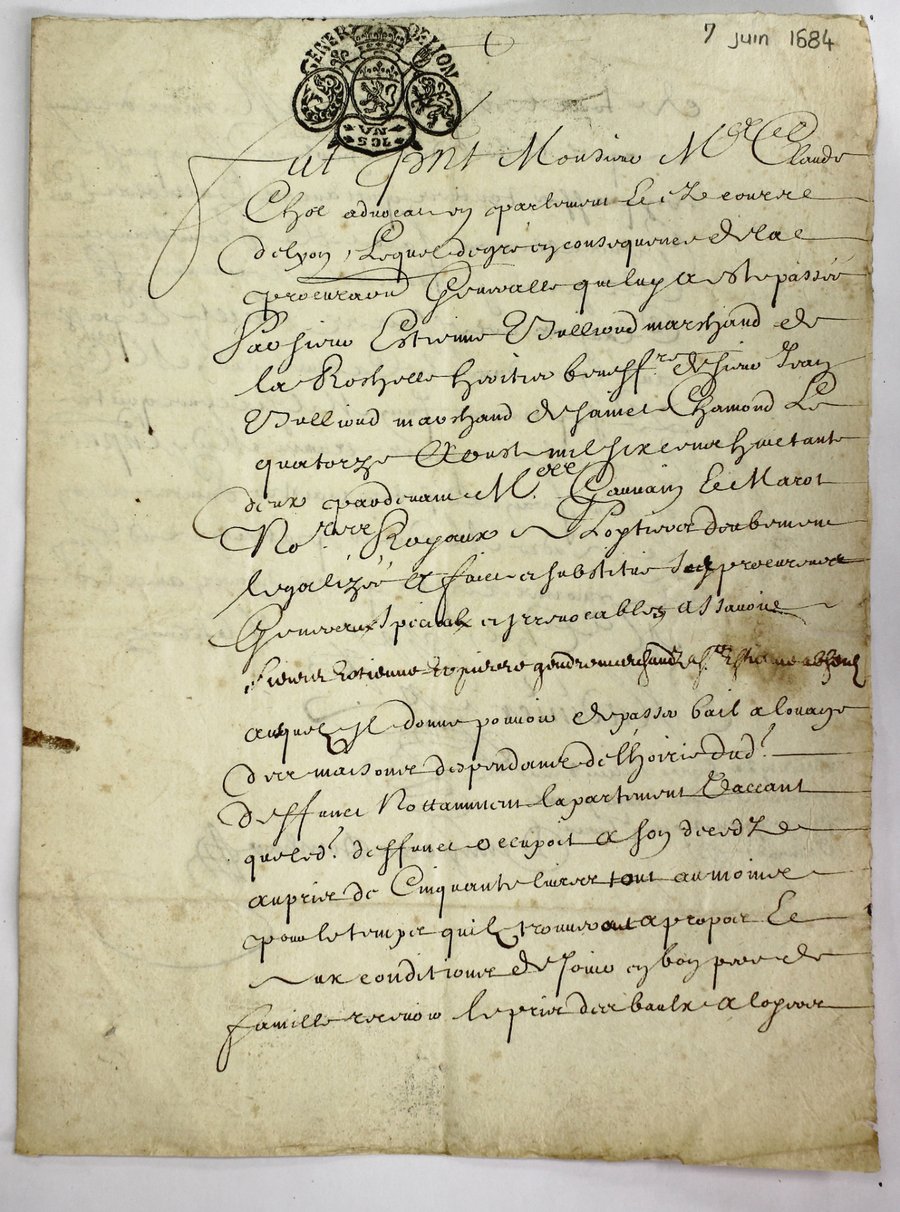 7 juin 1684
GENER DE LYON
Fut pnt Monsieur Mere Claude
Chol advocat en parlement Et ez courtz
de lyon, Lequel de gré en consequence de la
procuraon Generalle quil luy a esté passée
Par sieur Estienne Vullioud marchand de
la Rochelle heritier beneff.re de sieur Jean
Vullioud marchand de sainct Chamond Le
quatorze Aoust mil six cent huictante
deux pardevant Mere Gauvain Et Marot
No.res Royaux
legalizée a faict et substitué
Generaux speciaux et irrevocables assavoir
sieurs Estienne
auquelz Il donne pouvoir de passer bail a louage
des maisons despendantz de lhoirie dud.
deffunct Nottamment lapartement
que led. deffunct occupoit a son decedz
au prix de Cinquante livres tout au moins
pour le temps quilz trouveront a propos Et
aux conditions de Jouir en bon pere de
famille recevoir le prix des baulx a loyer